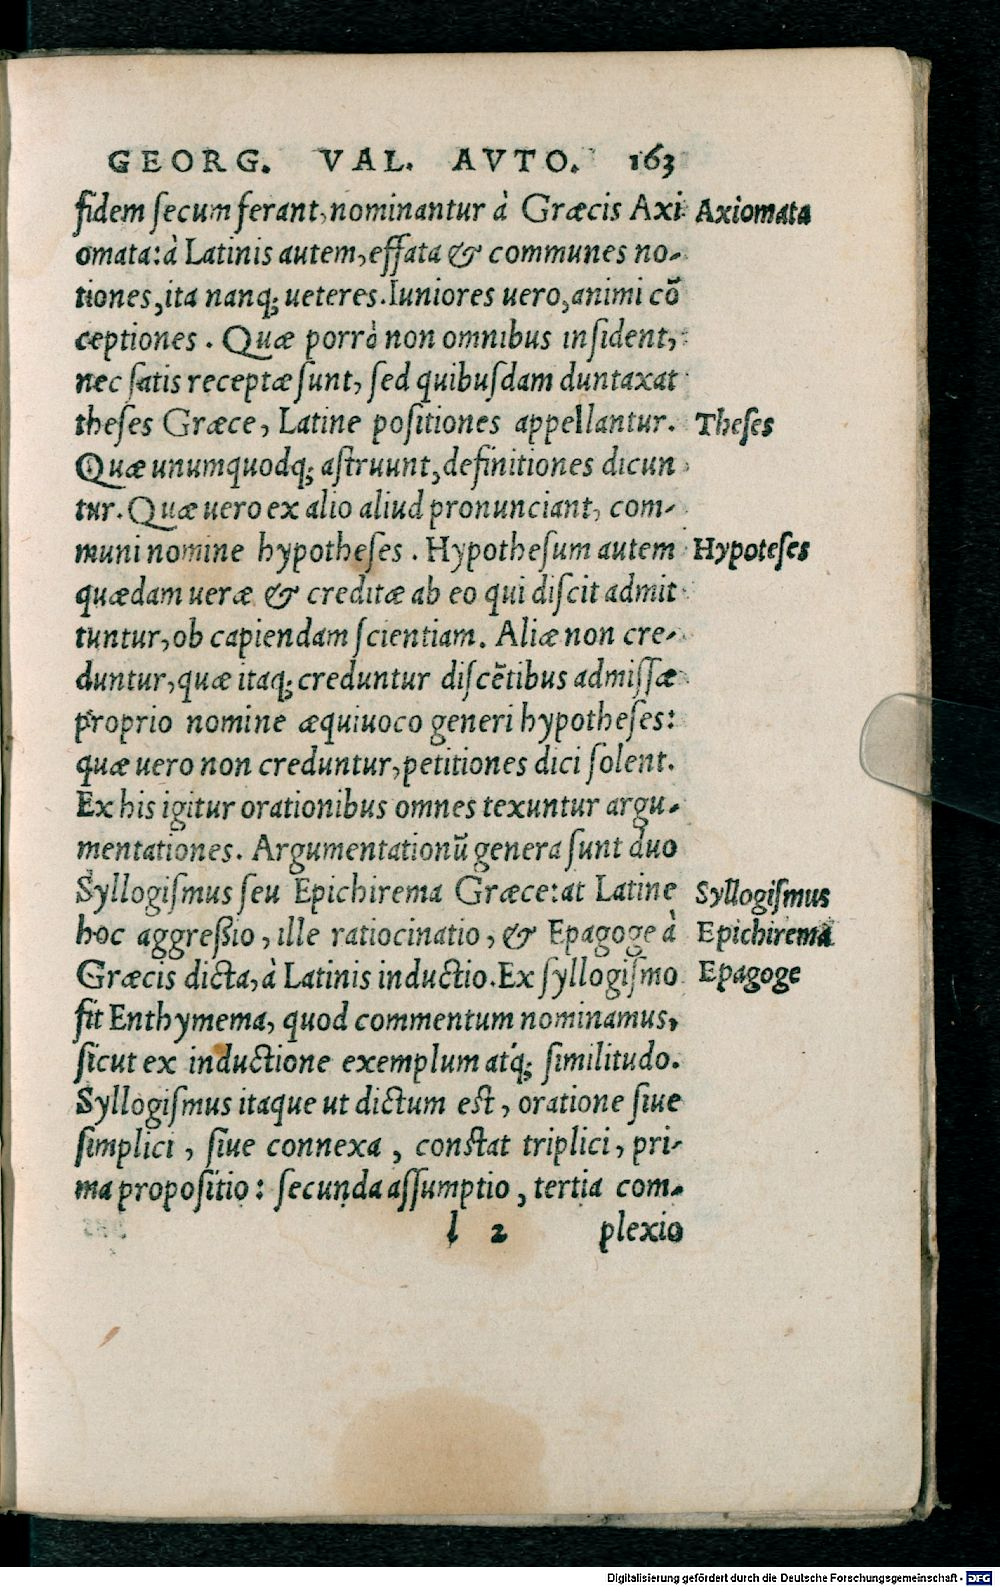 GEORG. VAL. AVTO. 163
fidem ſecum ferant, nominantur à Græcis Axi
Axiomata
omata: à Latinis autem, effata & communes no-
tiones, ita nanq; ueteres. Iuniores uero, animi cō
ceptiones. Quæ porrò non omnibus inſident,
nec ſatis receptæ ſunt, ſed quibuſdam duntaxat
theſes Græce, Latine poſitiones appellantur.
Theſes
Quæ unumquodq; aſtruunt, definitiones dicun
tur. Quæ uero ex alio aliud pronunciant, com-
muni nomine hypotheſes. Hypotheſum autem
Hypoteſes
quædam ueræ & creditæ ab eo qui diſcit admit
tuntur, ob capiendam ſcientiam. Aliæ non cre-
duntur, quæ itaq; creduntur diſcētibus admiſſæ
proprio nomine æquiuoco generi hypotheſes:
quæ uero non creduntur, petitiones dici ſolent.
Ex his igitur orationibus omnes texuntur argu-
mentationes. Argumentationū genera ſunt duo
Syllogiſmus ſeu Epichirema Græce: at Latine
Syllogiſmus
hoc aggreßio, ille ratiocinatio, & Epagoge à
Epichirema
Græcis dicta, à Latinis inductio. Ex ſyllogiſmo
Epagoge
fit Enthymema, quod commentum nominamus,
ſicut ex inductione exemplum atq́; ſimilitudo.
Syllogiſmus itaque ut dictum eſt, oratione ſiue
ſimplici, ſiue connexa, conſtat triplici, pri-
ma propoſitio: ſecunda aſſumptio, tertia com-
l 2 plexio
Digitalisierung gefördert durch die Deutsche Forschungsgemeinschaft - DFG